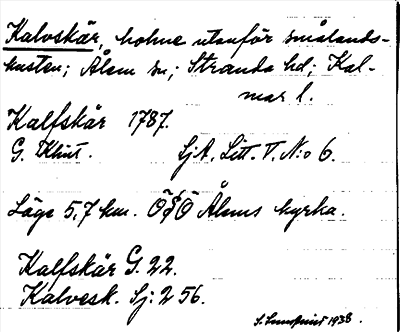 Kalvskär, holme utanför smålands-
kusten; Ålem sn; Stranda hd; Kal-
mar l.
Kalfskär 1787.
G. Klint. SjA. Litt. V. N:o 6.
Läge 5,7 km. ÖSÖ Ålems kyrka.
Kalfskär G. 22.
Kalvesk. Sj: 256.
S. Lundquist 1938.